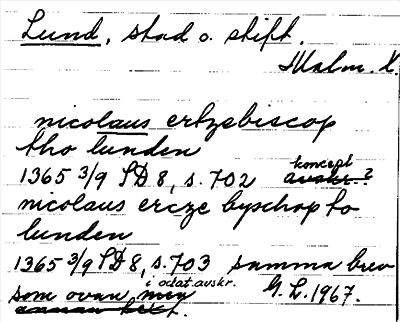 Lund, stad o. stift.
Malm. X.
nicolaus ertzebiscop
tho lunden
koncept
1365 3/9 SD 8, s. 702 avskr. ?
nicolaus ercze byschop to
lunden
1365 3/9 SD 8, s. 703 samma brev
i odat. avskr.
som ovan, men G. L. 1967.
annan hskt.